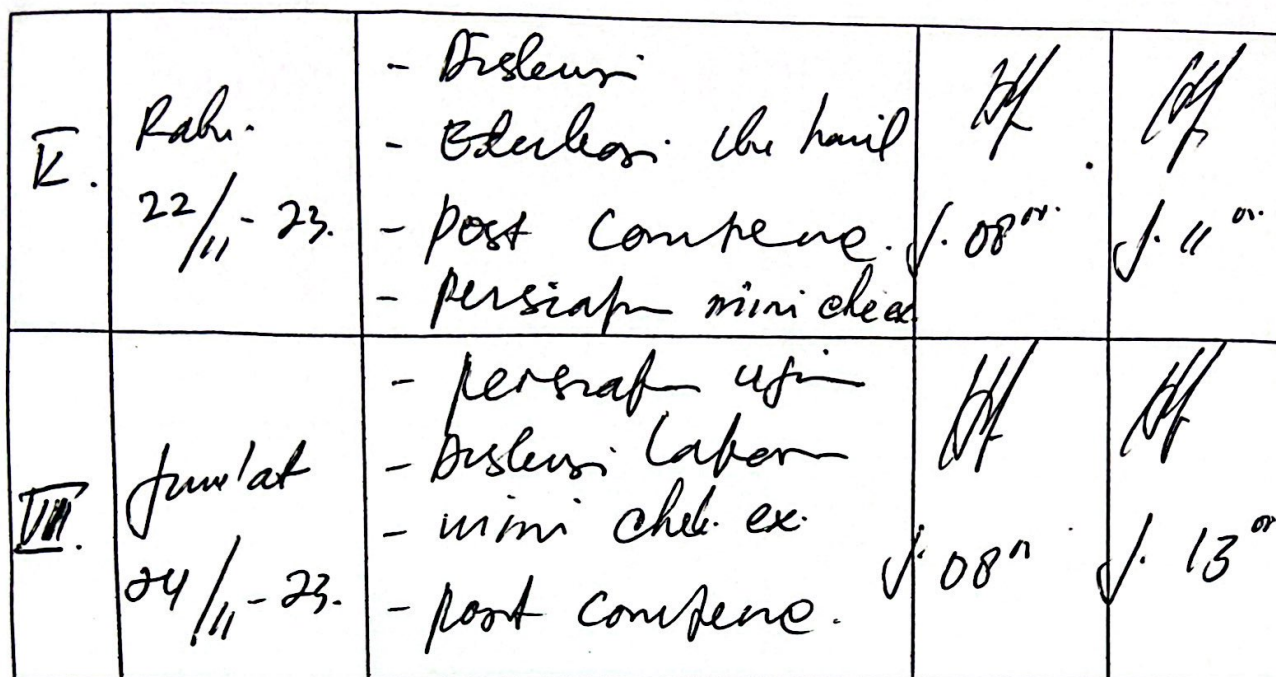 Rabu.
22/11-23.
- Diskusi
- Edukasi ibu hamil
- post conference.
- persiapan mini chek ex.
J. 08 00.
J. 11 00.
VIII.
Jum'at
24/11-23.
- persiapan ujian
- Diskusi laporan
- mini chek. ex.
- post conference.
J. 08 00
J. 13 00